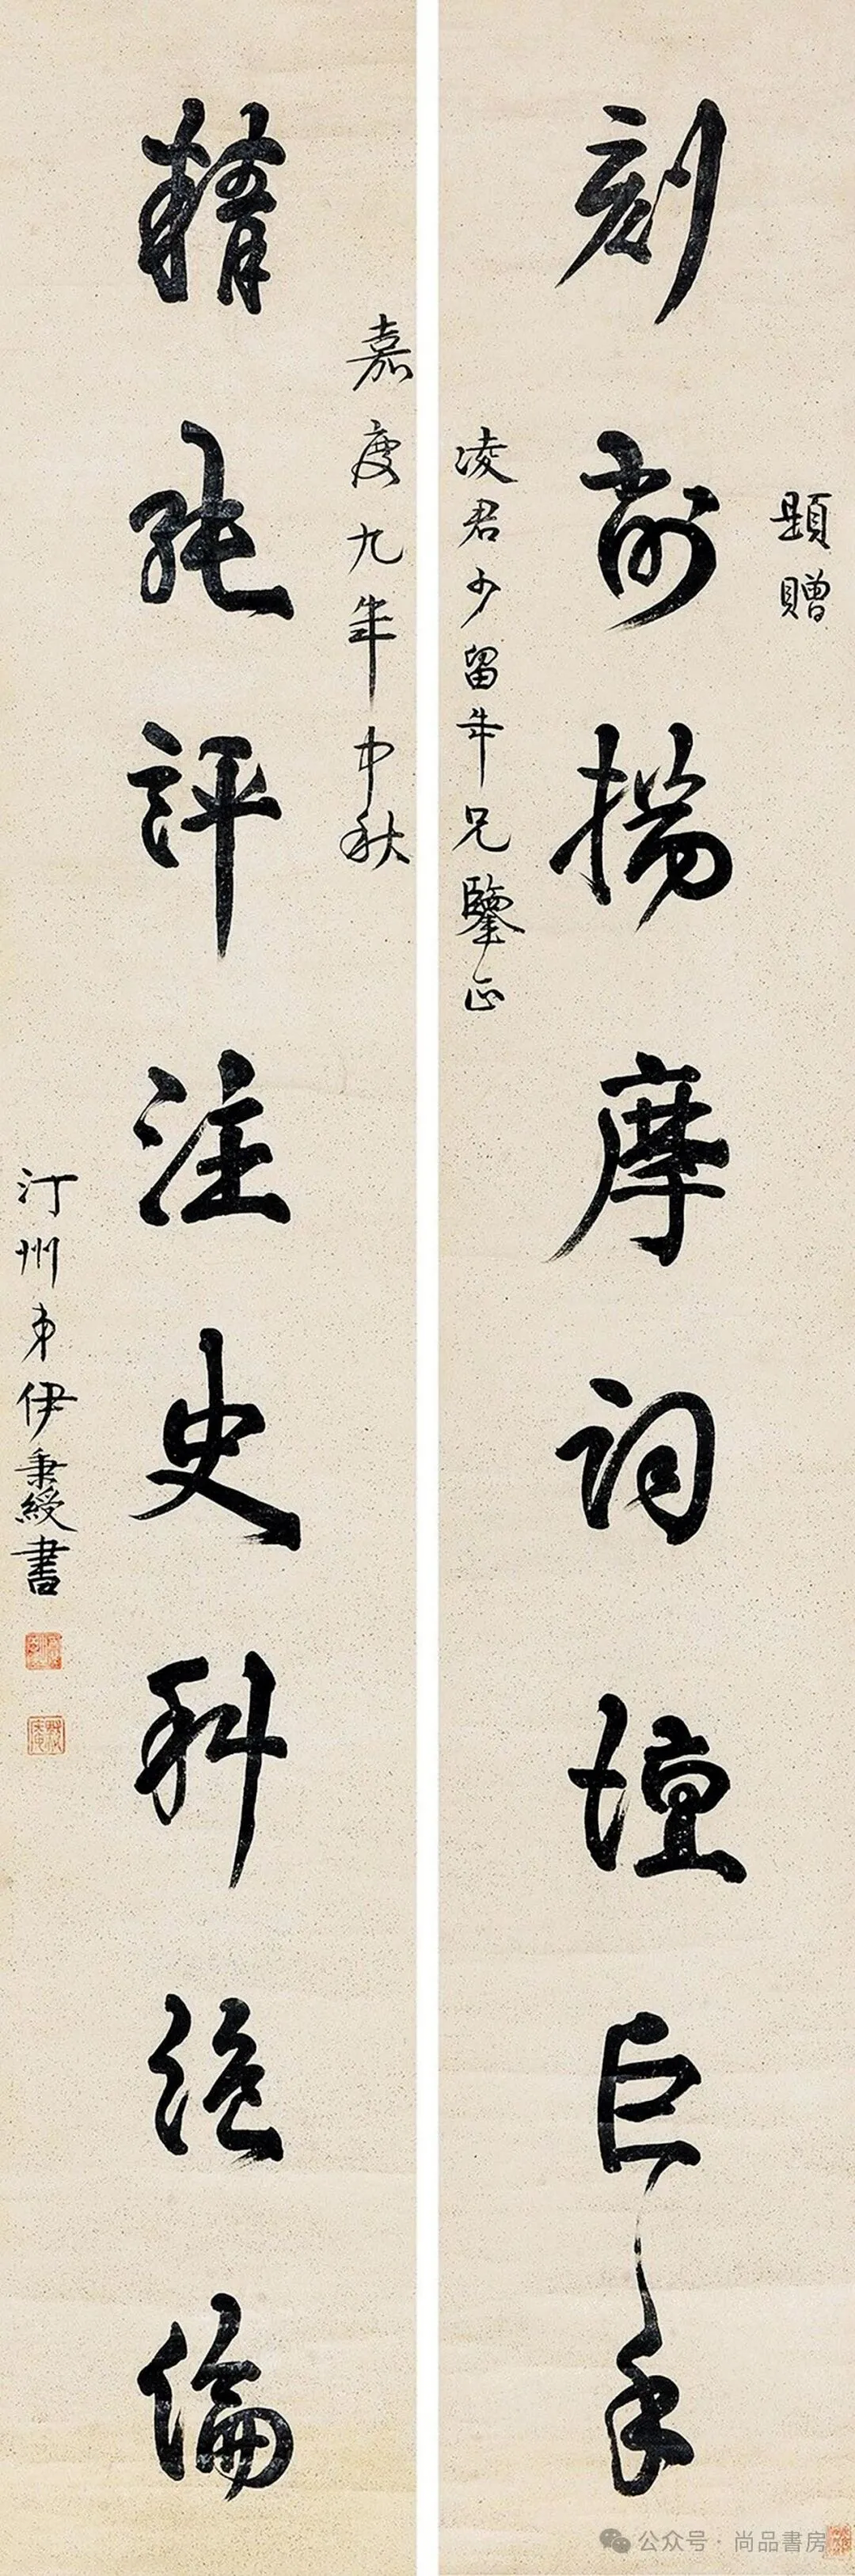 題贈
刻揚摩詞壇巨手
凌君少留年兄鑒正
嘉慶九年中秋
精純評注史科絕倫
汀州弟伊秉綬書
公众号·尚品書房